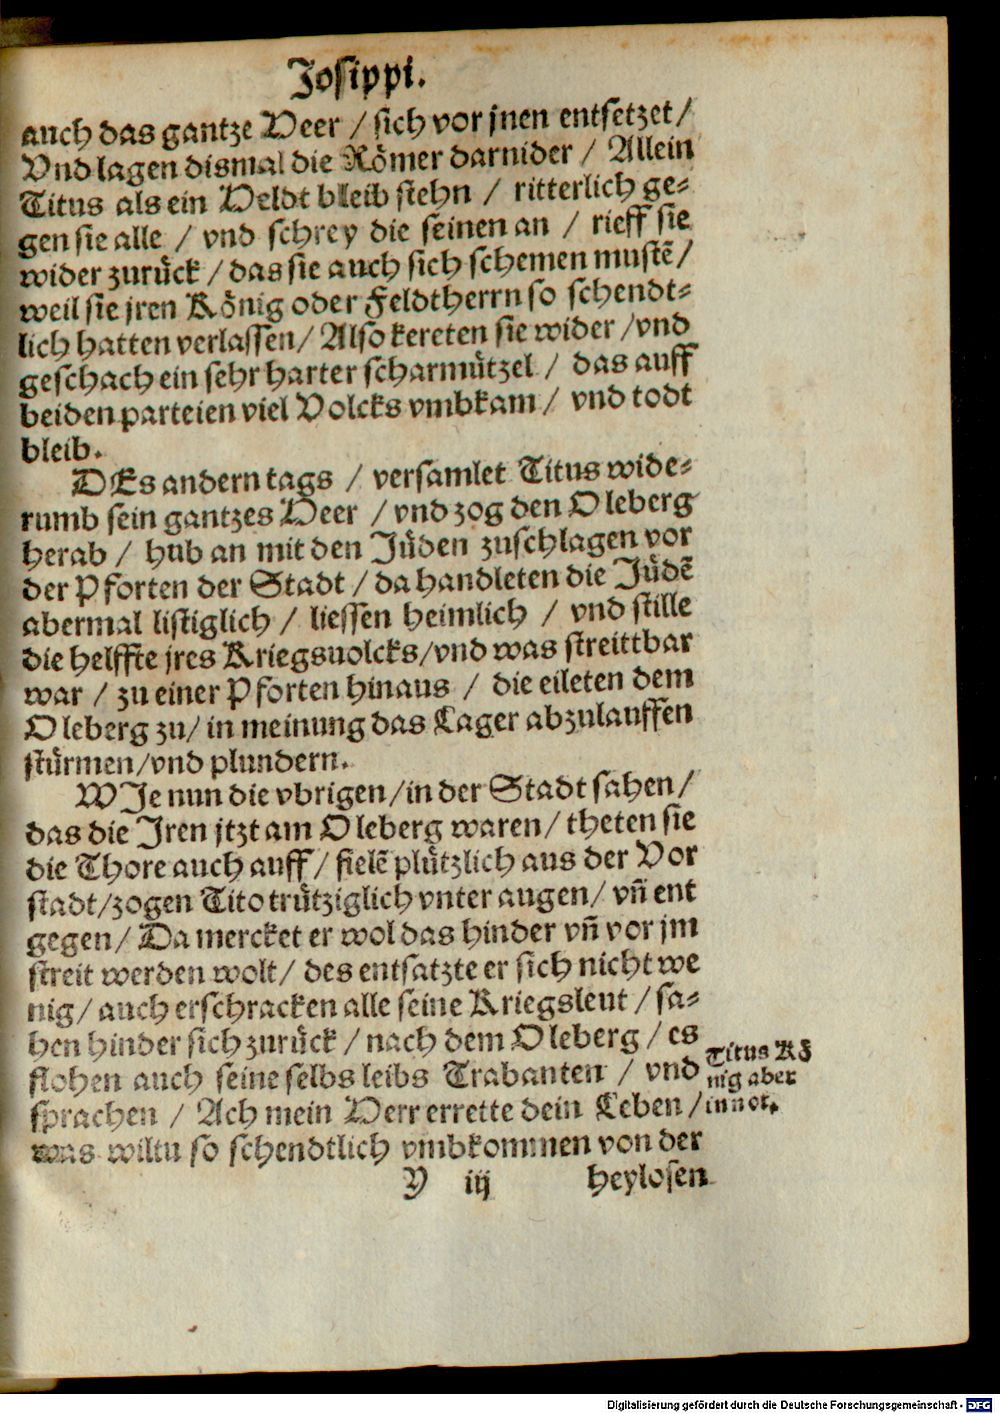 Josippi.
auch das gantze Heer / sich vor jnen entsetzet /
Vnd lagen dismal die Römer darnider / Allein
Titus als ein Heldt bleib stehn / ritterlich ge-
gen sie alle / vnd schrey die seinen an / rieff sie
wider zurück / das sie auch sich schemen mustẽ /
weil sie jren König oder Feldtherrn so schendt-
lich hatten verlassen / Also kereten sie wider / vnd
geschach ein sehr harter scharmützel / das auff
beiden parteien viel Volcks vmbkam / vnd todt
bleib.
DEs andern tags / versamlet Titus wide-
rumb sein gantzes Heer / vnd zog den Oleberg
herab / hub an mit den Jüden zuschlagen vor
der Pforten der Stadt / da handleten die Jüdẽ
abermal listiglich / liessen heimlich / vnd stille
die helffte jres Kriegsuolcks / vnd was streittbar
war / zu einer Pforten hinaus / die eileten dem
Oleberg zu / in meinung das Lager abzulauffen
stürmen / vnd plundern.
WJe nun die vbrigen / in der Stadt sahen /
das die Jren jtzt am Oleberg waren / theten sie
die Thore auch auff / fielẽ plützlich aus der Vor
stadt / zogen Tito trützziglich vnter augen / vñ ent
gegen / Da mercket er wol das hinder vñ vor jm
streit werden wolt / des entsatzte er sich nicht we
nig / auch erschracken alle seine Kriegsleut / sa-
hen hinder sich zurück / nach dem Oleberg / es
flohen auch seine selbs leibs Trabanten / vnd
sprachen / Ach mein Herr errette dein Leben /
was wiltu so schendtlich vmbkommen von der
Titus Kö
nig aber
in not.
Y iij heylosen
Digitalisierung gefördert durch die Deutsche Forschungsgemeinschaft - DFG